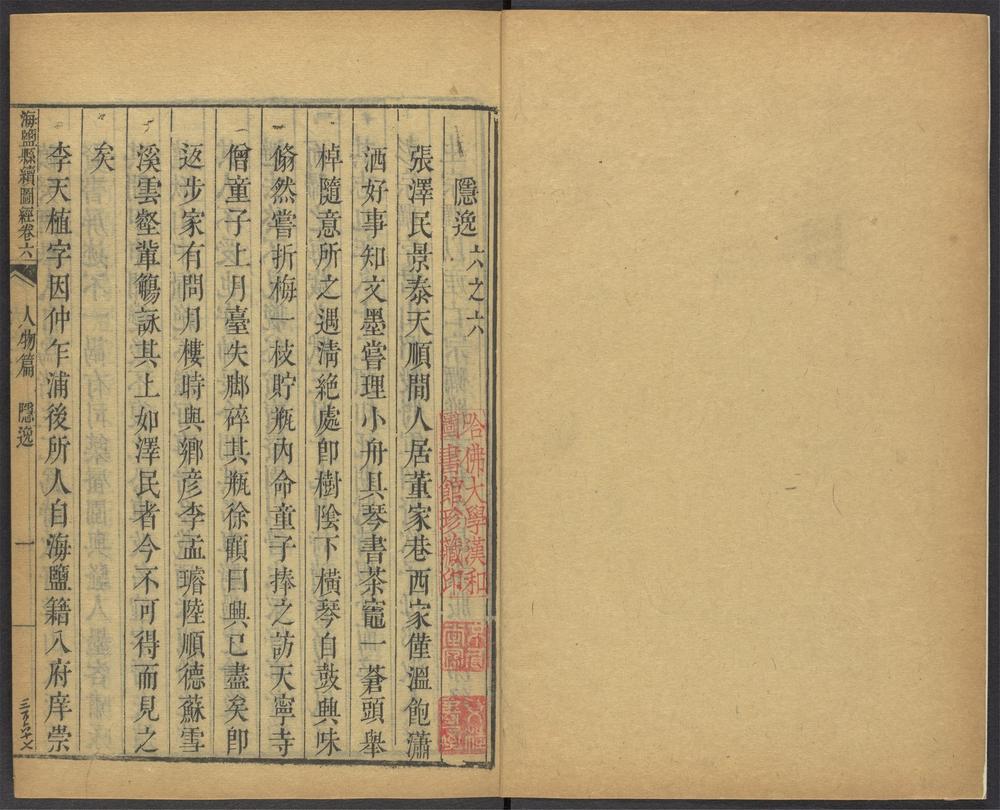 隱逸 六之六
張澤民景泰天順間人居董家巷西家僅溫飽瀟
洒好事知文墨嘗理小舟具琴書茶竈一蒼頭舉
棹隨意所之遇清絶處卽樹陰下橫琴自鼓興味
翛然嘗折梅一枝貯瓶內命童子捧之訪天寧寺
僧童子上月臺失脚碎其瓶徐顧曰興已盡矣卽
返步家有問月樓時與鄉彥李孟璿陸順德蘇雪
溪雲壑輩觴詠其上如澤民者今不可得而見之
矣
李天植字因仲乍浦後所人自海鹽籍入府庠崇
海鹽縣續圖經卷六 人物篇 隱逸 一
哈佛大學漢和
圖書館珍藏印